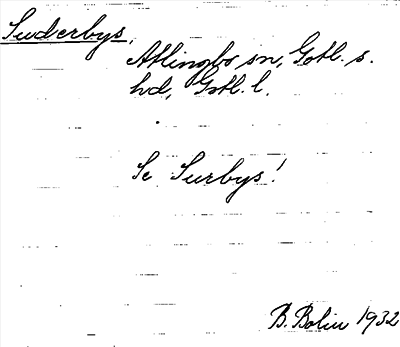 Suderbys,
Atlingbo sn, Gotl. s.
hd, Gotl. l.
Se Surbys!
B. Bolin 1932